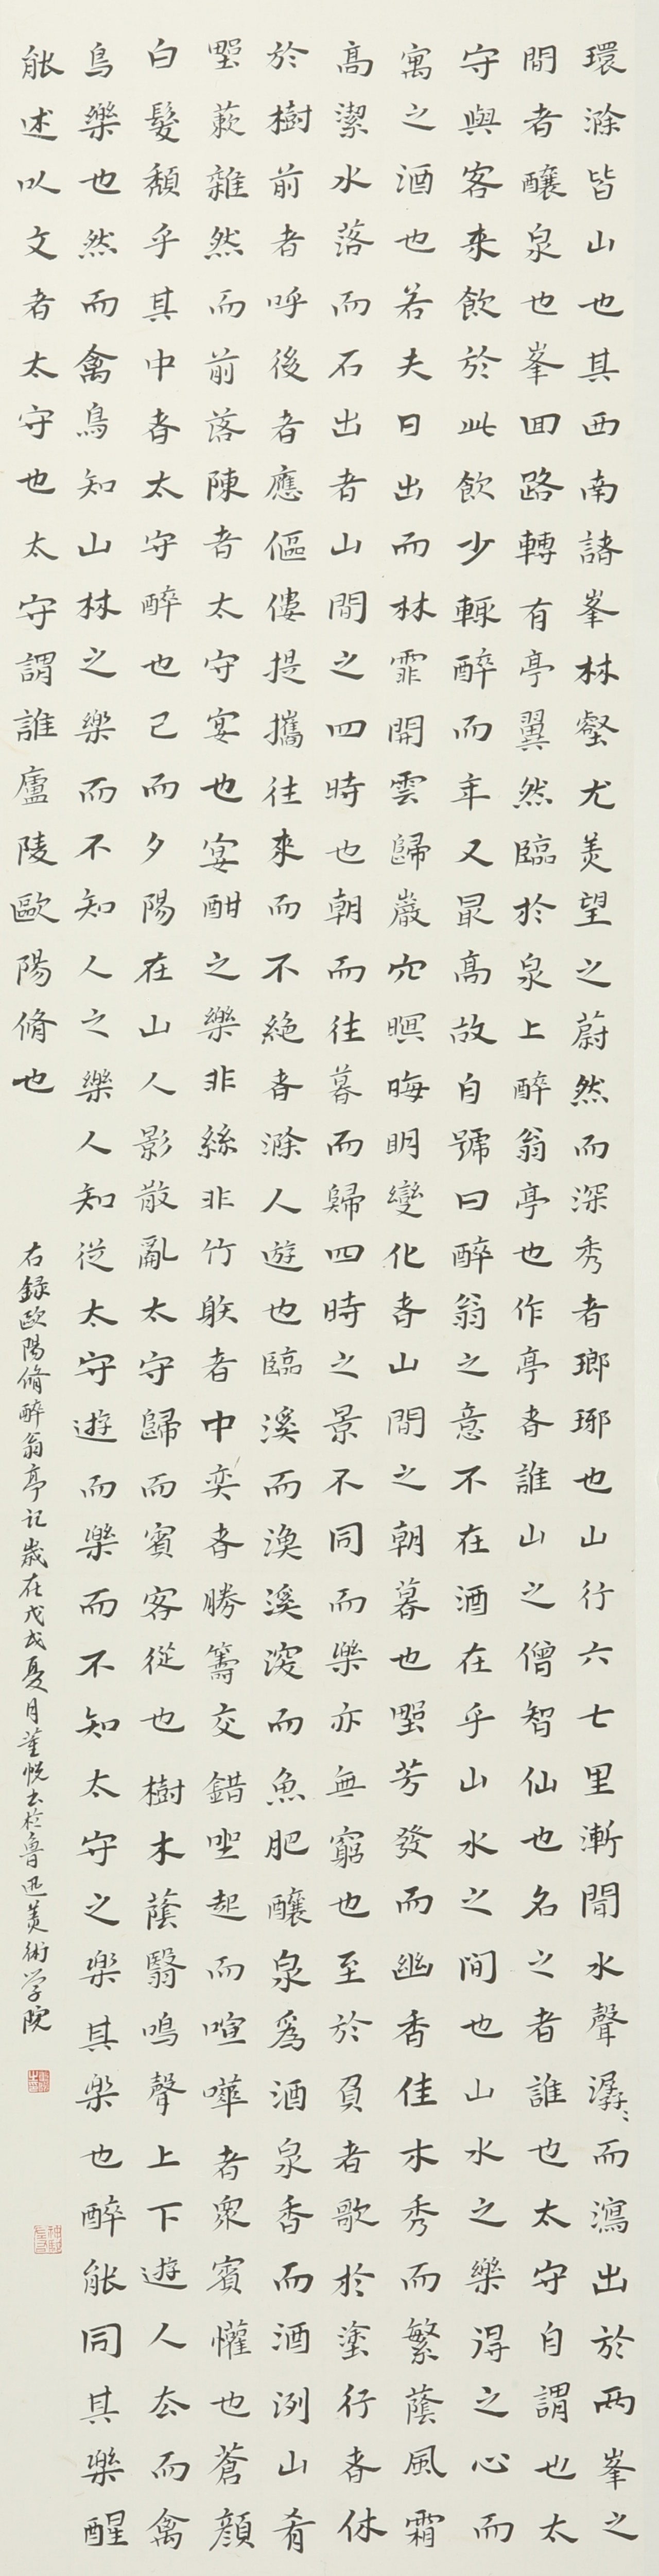 環滁皆山也其西南諸峯林壑尤美望之蔚然而深秀者瑯琊也山行六七里漸聞水聲潺〻而瀉出於兩峯之
間者釀泉也峯回路轉有亭翼然臨於泉上醉翁亭也作亭者誰山之僧智仙也名之者誰也太守自謂也太
守與客來飲於此飲少輒醉而年又最高故自號曰醉翁之意不在酒在乎山水之間也山水之樂得之心而
寓之酒也若夫日出而林霏開雲歸巖穴暝晦明變化者山間之朝暮也野芳發而幽香佳木秀而繁蔭風霜
高潔水落而石出者山間之四時也朝而往暮而歸四時之景不同而樂亦無窮也至於負者歌於塗行者休
於樹前者呼後者應傴僂提攜往來而不絕者滁人遊也臨溪而漁溪深而魚肥釀泉為酒泉香而酒洌山肴
野蔌雜然而前落陳者太守宴也宴酣之樂非絲非竹射者中奕者勝籌交錯坐起而喧嘩者衆賓懽也蒼顏
白髮頹乎其中者太守醉也已而夕陽在山人影散亂太守歸而賓客從也樹木蔭翳鳴聲上下遊人去而禽
鳥樂也然而禽鳥知山林之樂而不知人之樂人知從太守遊而樂而不知太守之樂其樂也醉能同其樂醒
能述以文者太守也太守謂誰廬陵歐陽脩也
右録歐陽脩醉翁亭記歲在戊戌夏月董悦書於魯迅美術学院